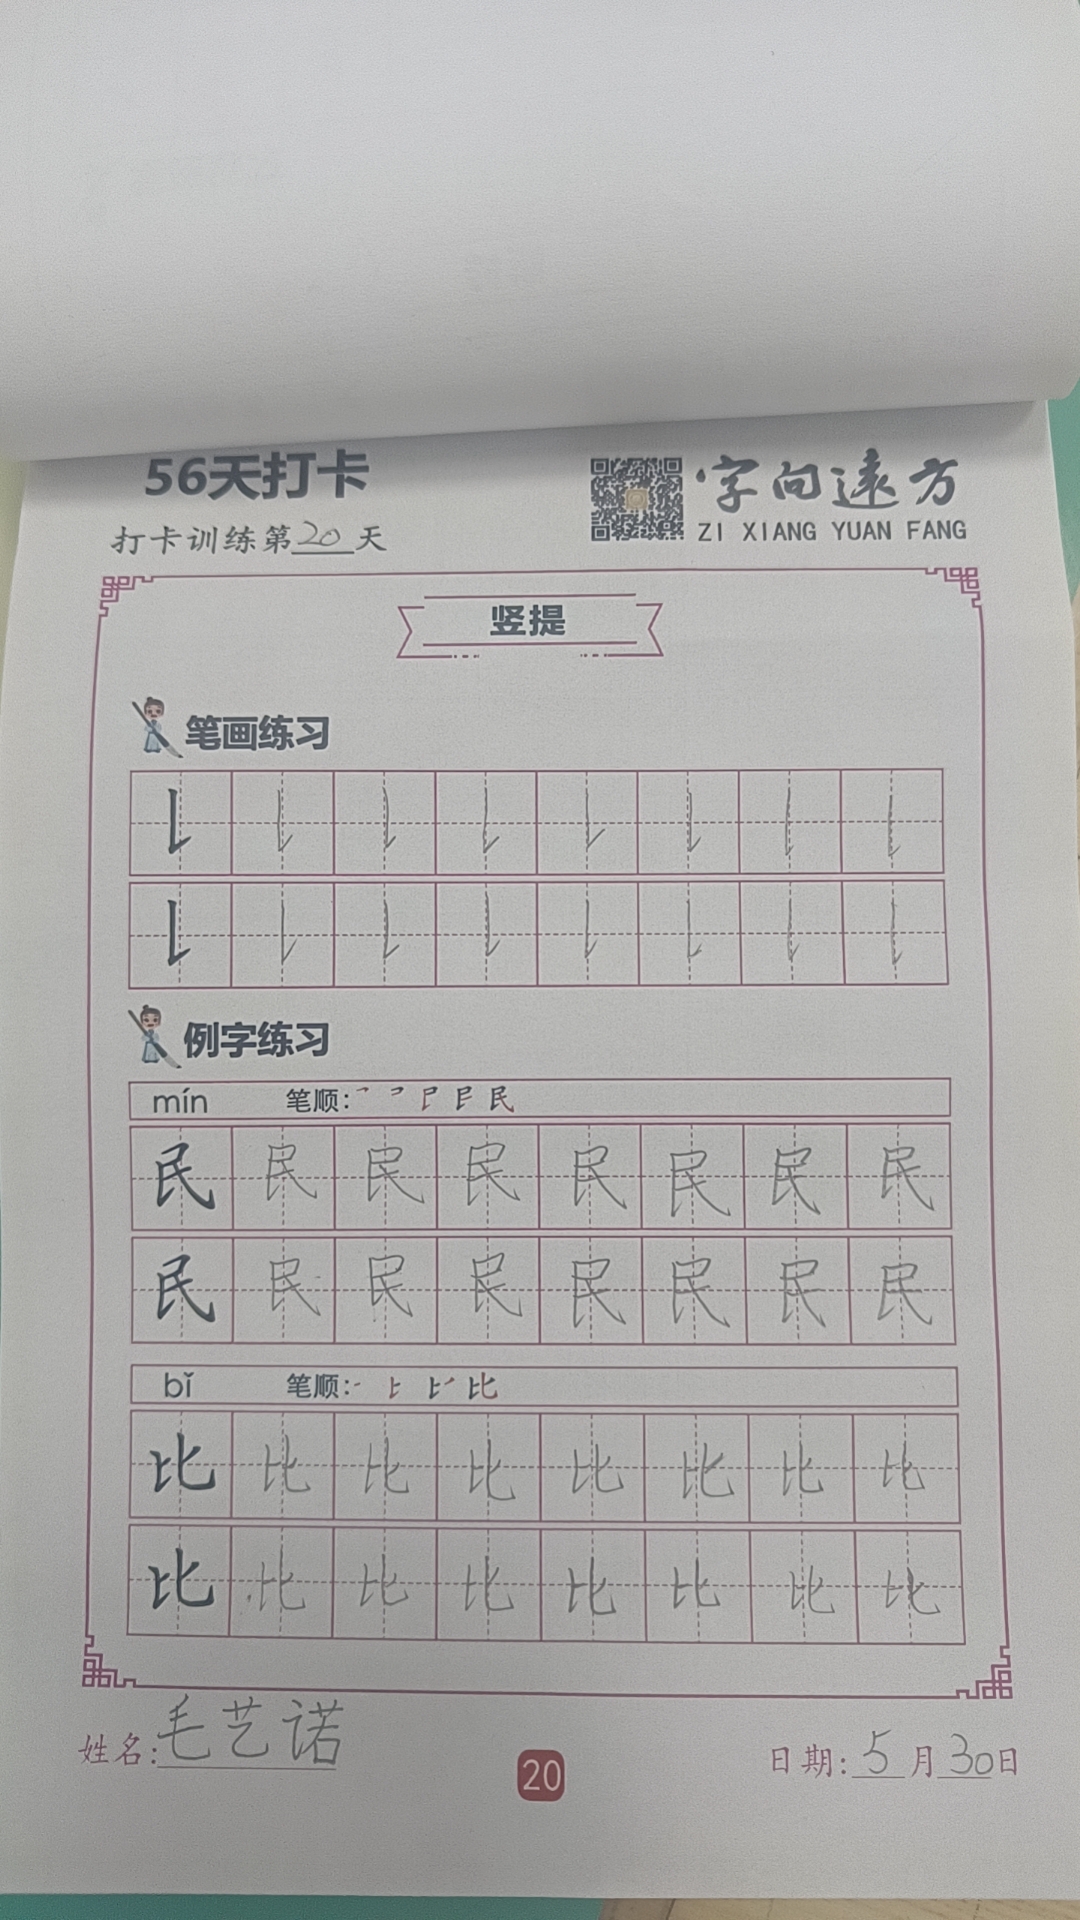 56天打卡
字向远方
打卡训练第20天
ZI XIANG YUAN FANG
竖提
笔画练习
例字练习
mín 笔顺:
民 民 民 民 民 民 民 民
民 民 民 民 民 民 民 民
bǐ 笔顺:
比 比 比 比 比 比 比 比
比 比 比 比 比 比 比 比
姓名:毛艺诺
20
日期:5月30日